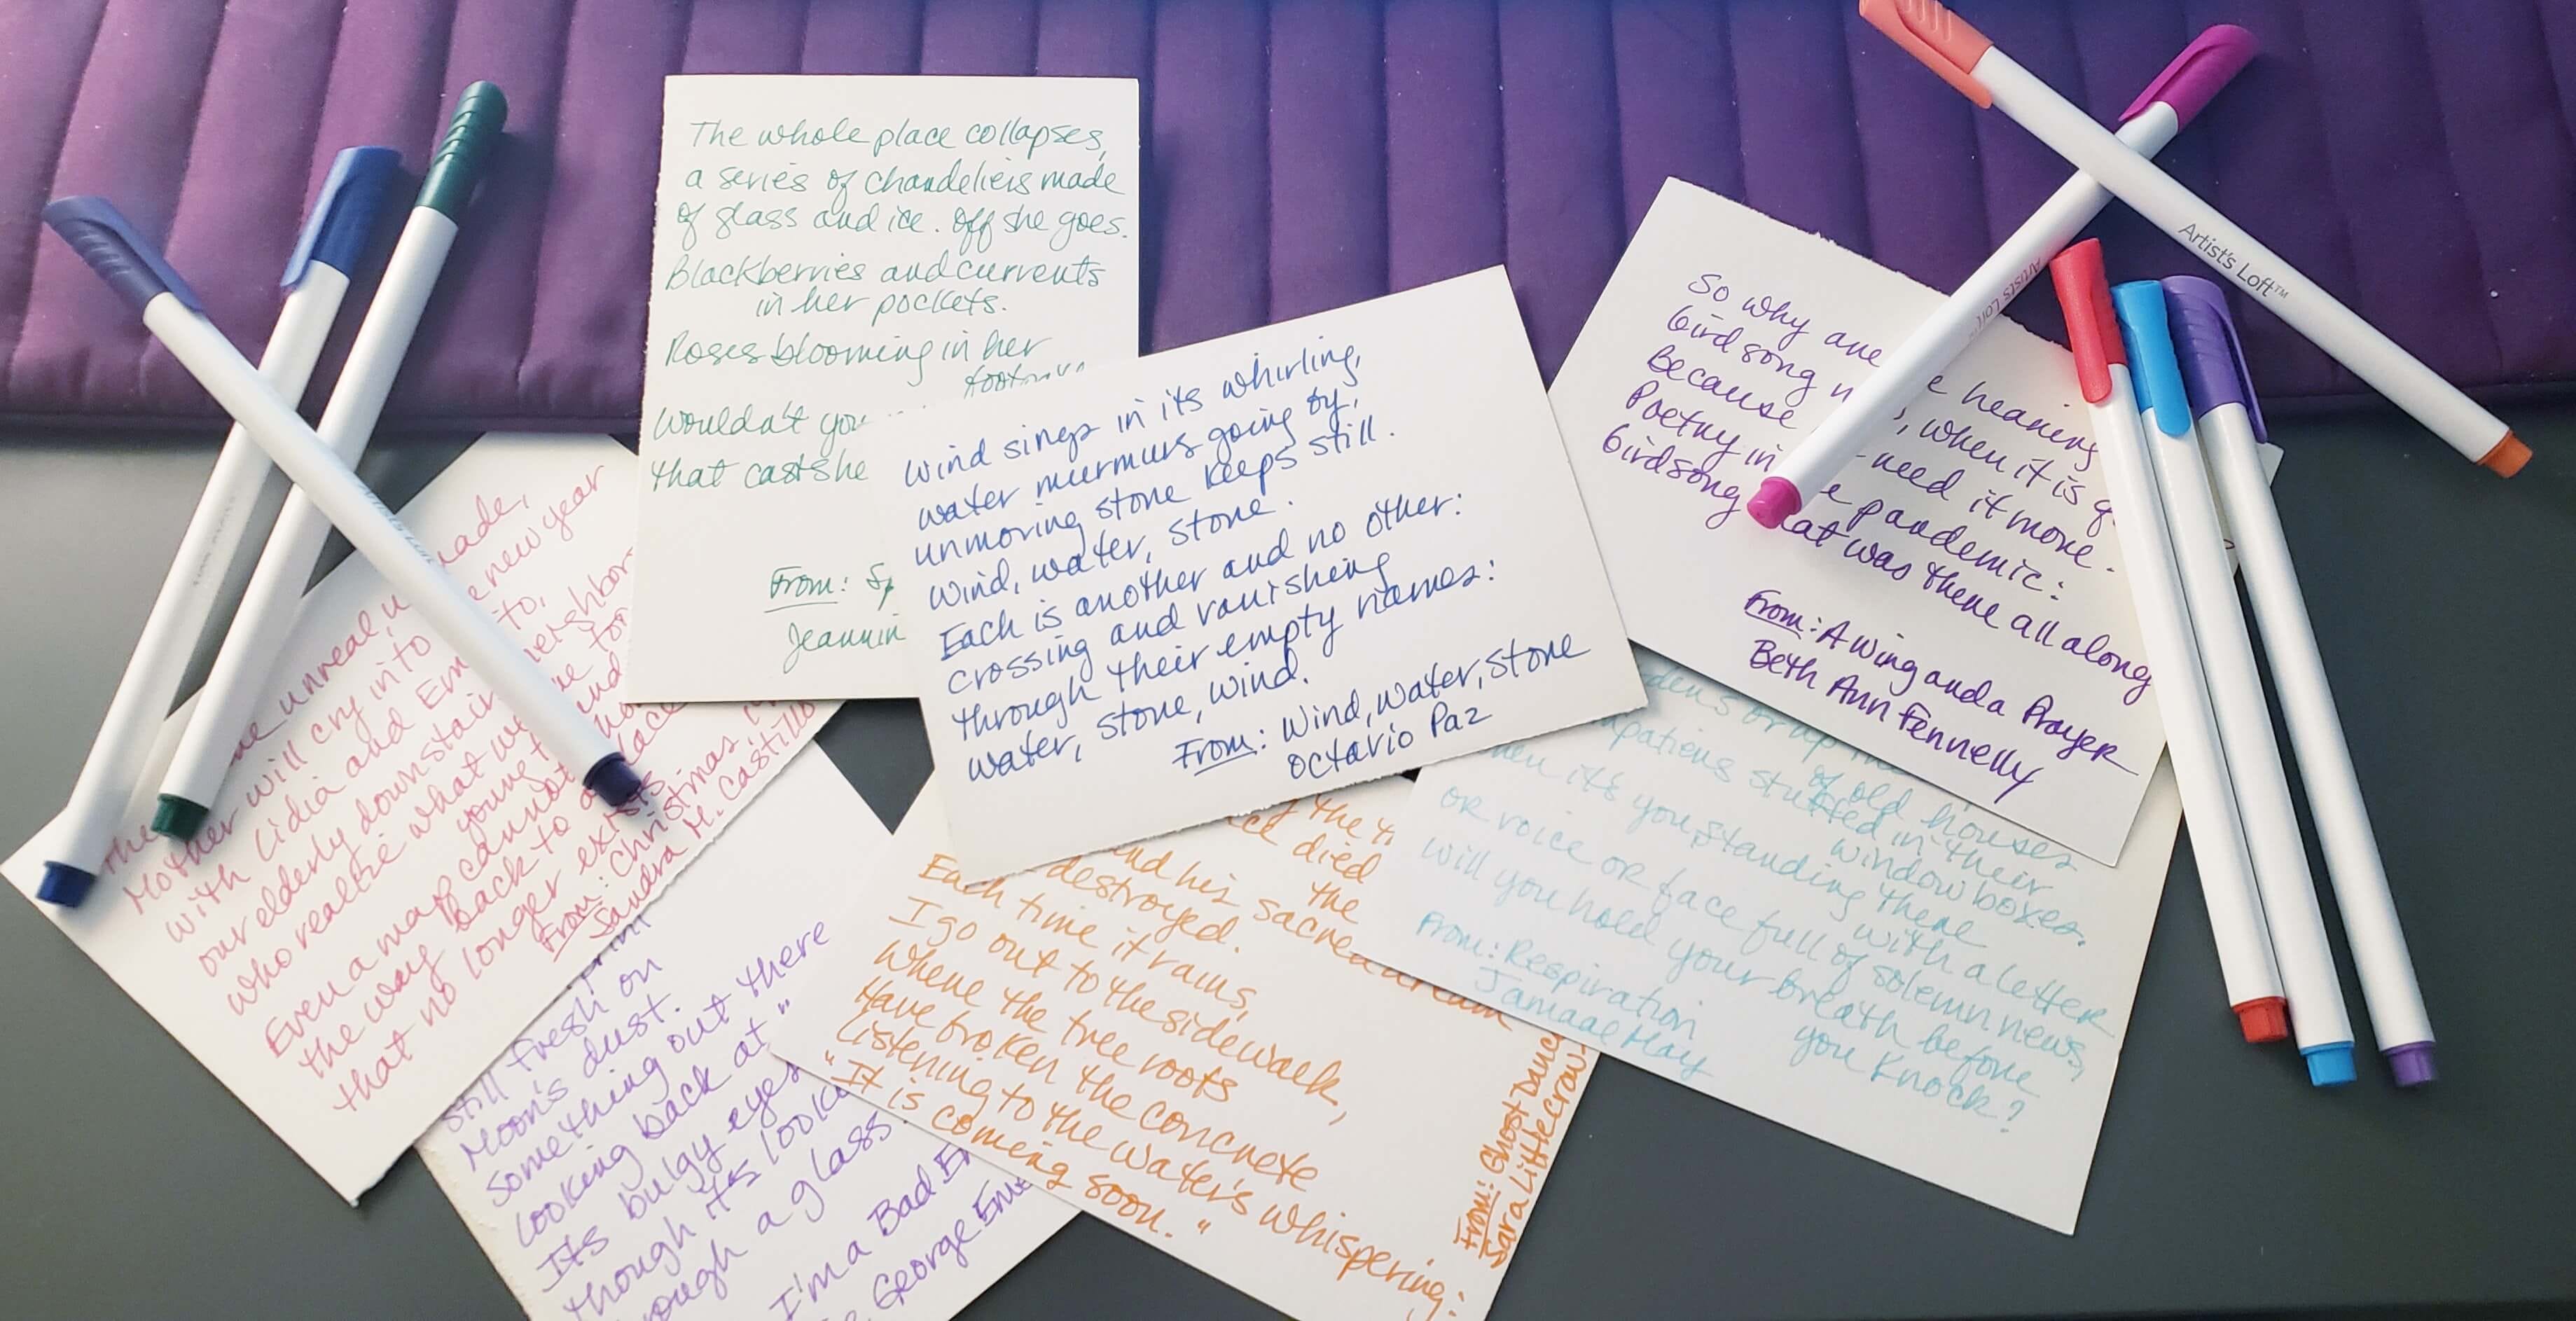 The whole place collapses,
a series of chandeliers made
of glass and ice. Off she goes.
Blackberries and currents
in her pockets.
Roses blooming in her
Wouldn't you
that casts he
From: Sp
Jeannin
Wind sings in its whirling,
water murmurs going by,
unmoving stone keeps still.
Wind, water, stone.
Each is another and no other:
crossing and vanishing
through their empty names:
water, stone, wind.
From: Wind, Water, Stone
Octavio Paz
So why are e hearing
birdsong n , when it is q
Because need it more.
Poetry in e pandemic:
birdsong hat was there all along
From: A wing and a Prayer
Beth Ann Fennelly
Artist's Loft™
Artist's Loft™
Artist's Loft
made,
the unreal new year
Mother will cry into to,
with Lidia and Em neighbor
our elderly downstair
who realize what we
young and
Even a map cannot
the way back to a place
that no longer exists
From: Christmas,
Sandra M. Castillo
print
still fresh on
Moon's dust.
Something out there
looking back at "
Its bulgy eyes
though it's looki
rough a glass
I'm a Bad En
George Eme
the
ce died
and his sacred dream
destroyed. the
Each time it rains,
I go out to the sidewalk,
Where the tree roots
Have broken the concrete
Listening to the water's whispering:
"It is coming soon."
From: Ghost Danc
Sara Littlecrow
dens or
of old houses
mpatiens stuffed in their
window boxes.
hen it's you standing there
with a letter
or voice or face full of solemn news,
will you hold your breath before
you knock?
From: Respiration
Jamaal May